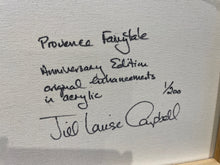 Provence Fairytale
Anniversary Edition
original enhancements
in acrylic 1/200
Jill Louise Campbell